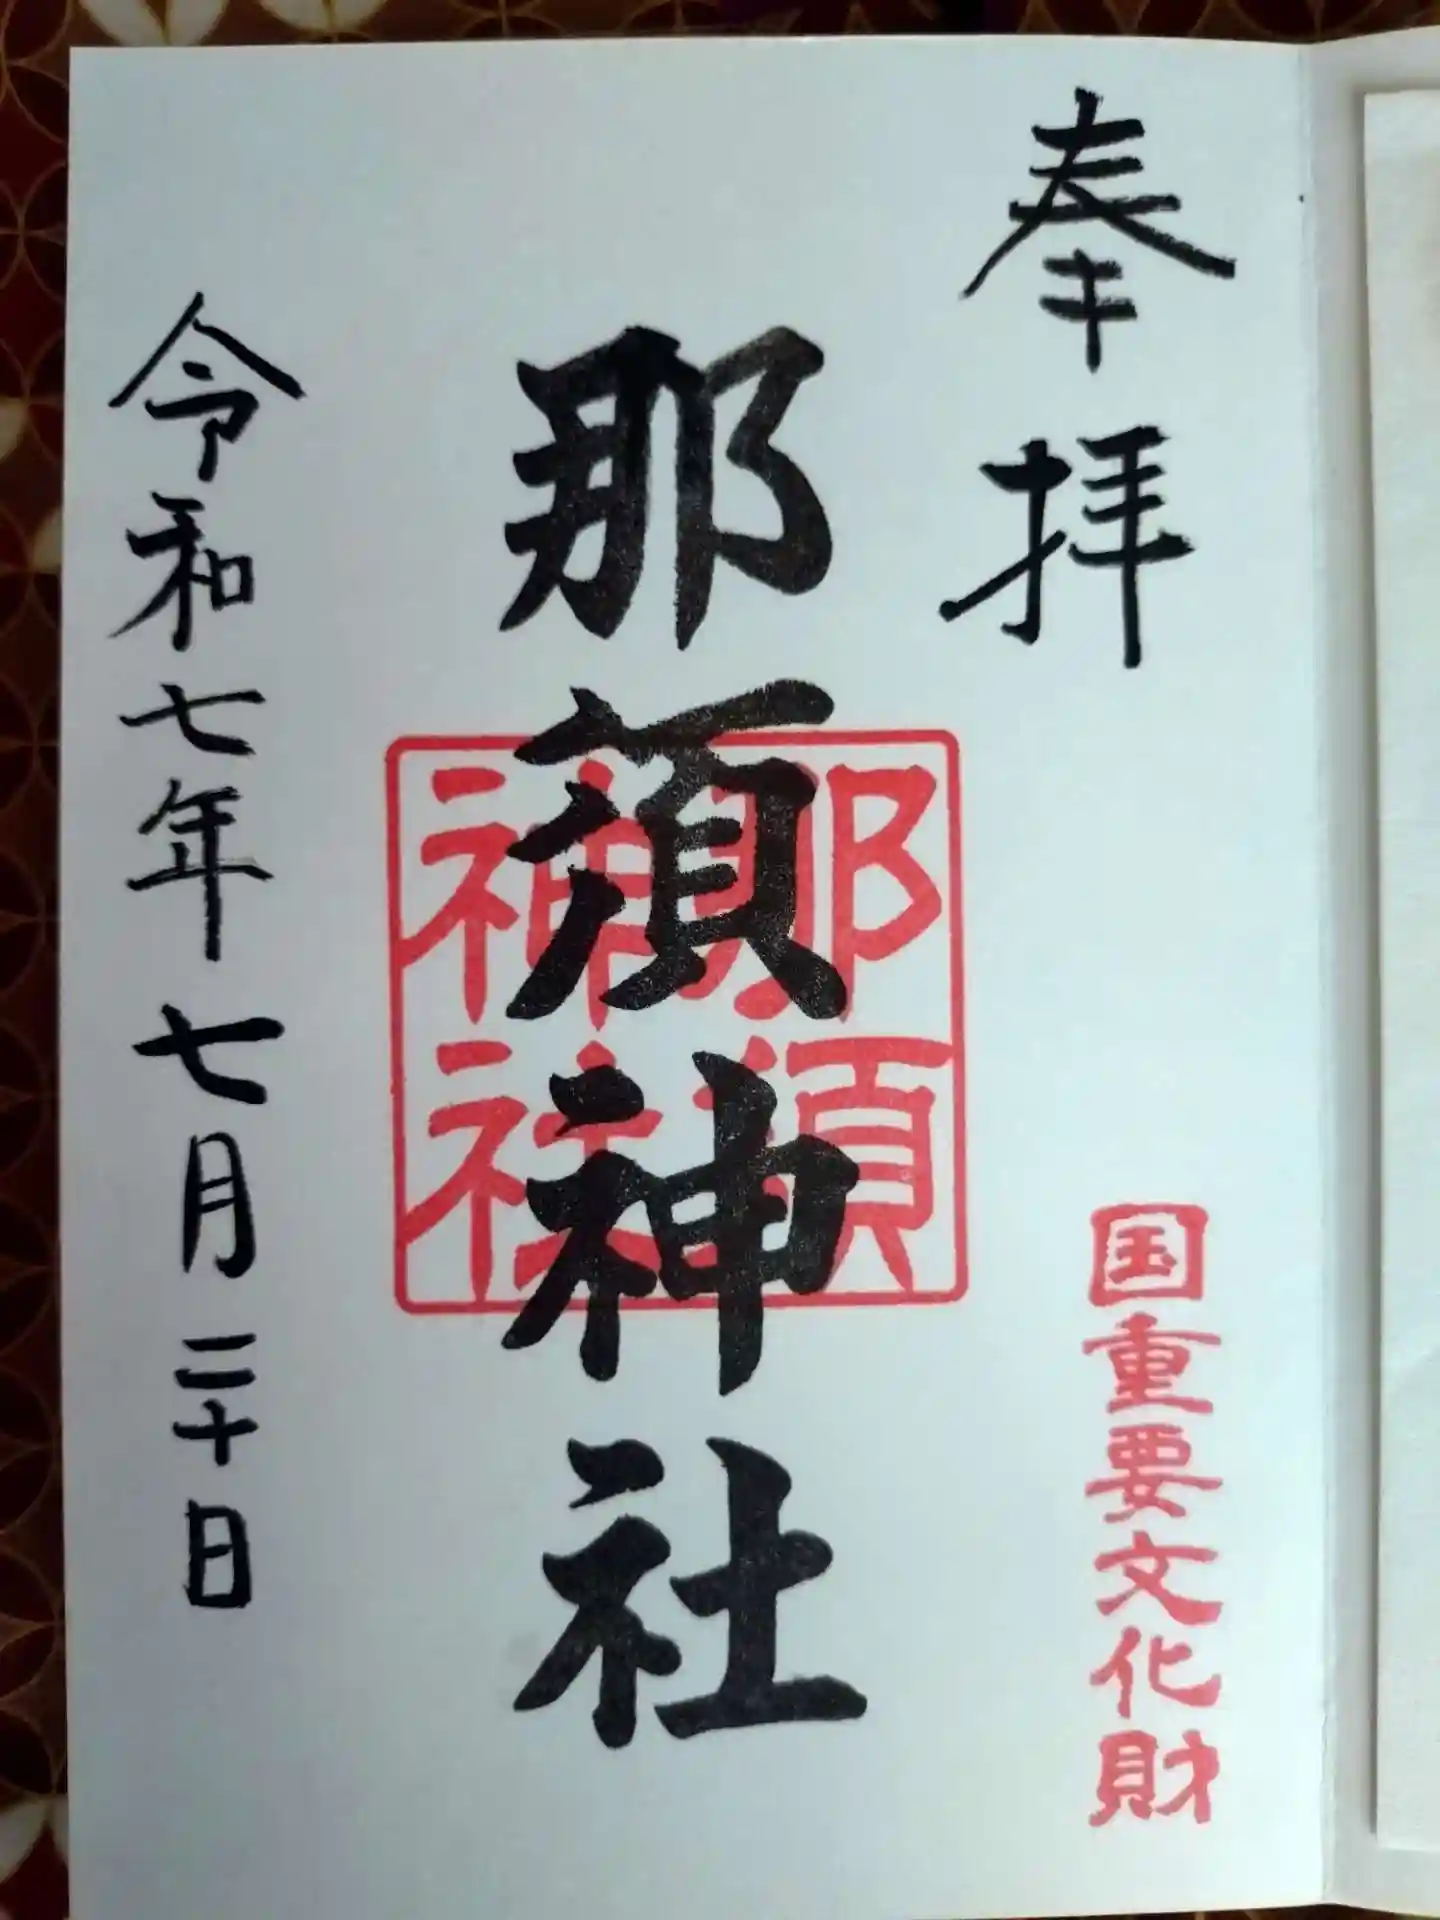 奉拝
国重要文化財
那須神社
那須
神社
令和七年七月二十日